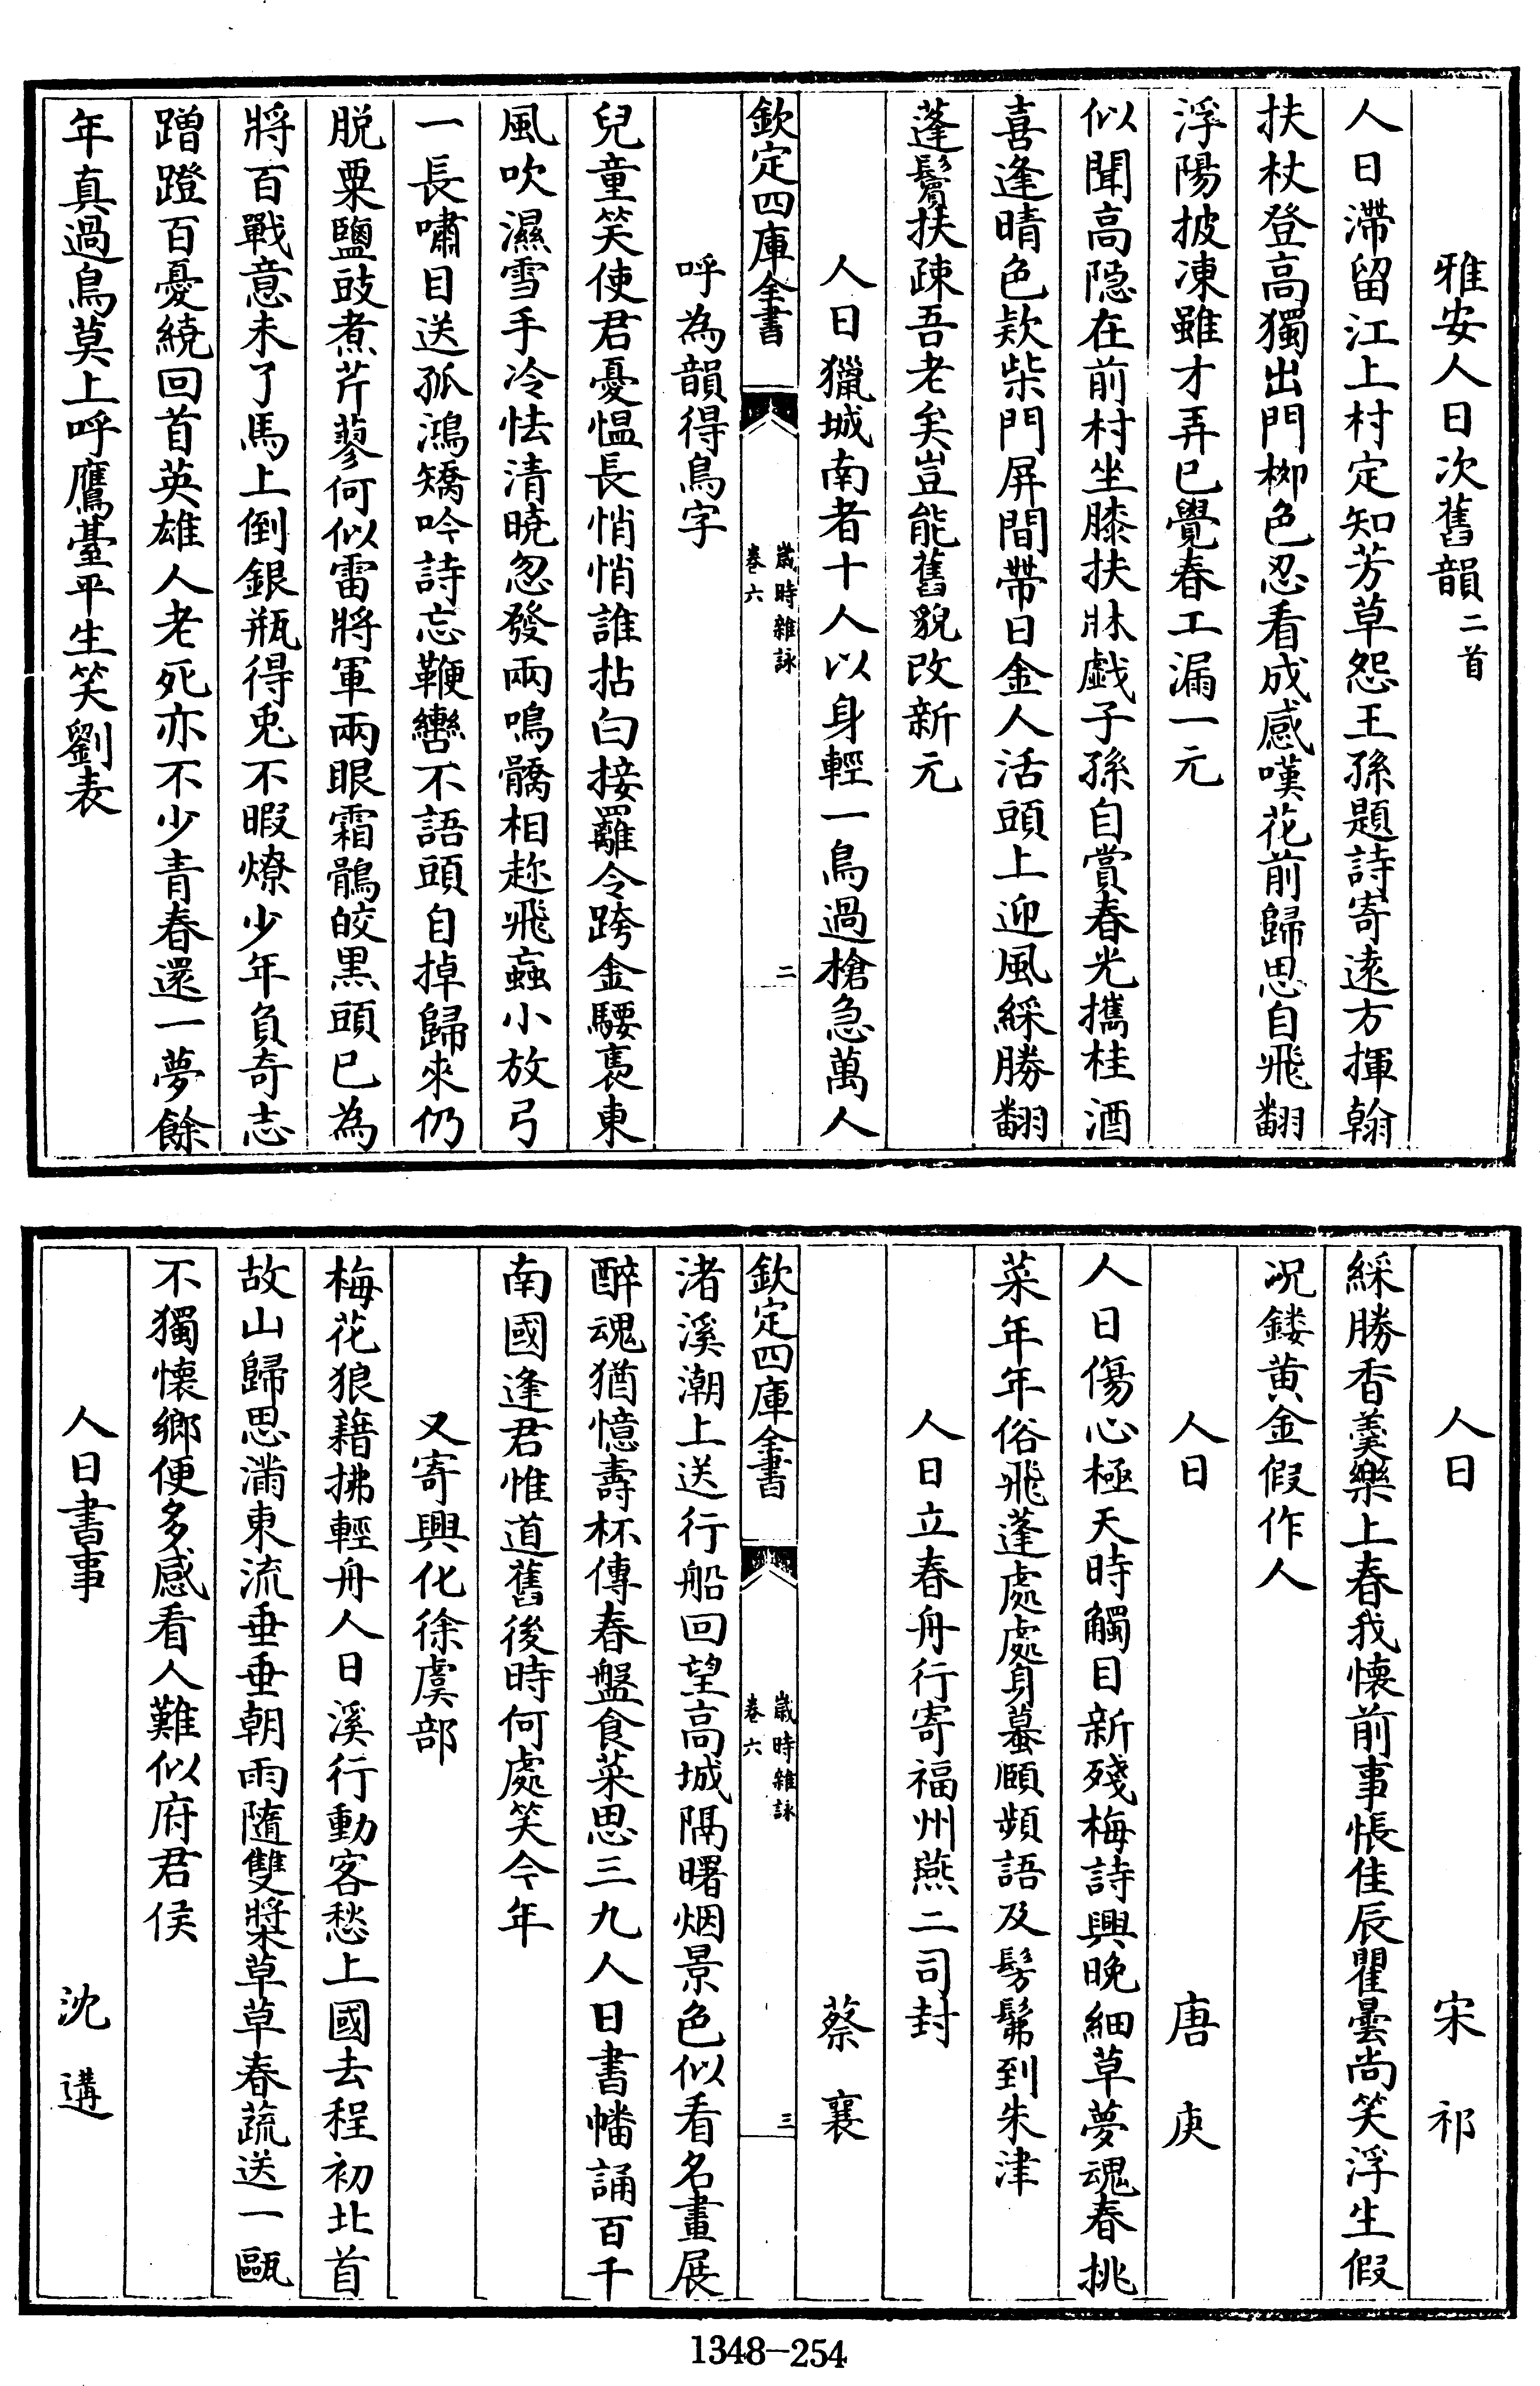 雅安人日次舊韻二首
人日滯留江上村定知芳草怨王孫題詩寄逺方揮翰
扶杖登高獨出門栁色忍看成感嘆花前歸思自飛翻
浮陽披凍雖才弄已覺春工漏一元
似聞高隠在前村坐膝扶牀戯子孫自賞春光攜桂酒
喜逢晴色欵柴門屏間帶日金人活頭上迎風綵勝翻
蓬鬢扶疎吾老矣豈能舊貌改新元
人日獵城南者十人以身輕一鳥過槍急萬人
欽定四庫全書
歲時雜詠
卷六
二
呼為韻得鳥字
兒童笑使君憂愠長悄悄誰拈白接䍦令跨金騕褭東
風吹濕雪手冷怯清曉忽發兩鳴髇相趂飛䖟小放弓
一長嘯目送孤鴻矯吟詩忘鞭轡不語頭自掉歸來仍
脱粟鹽豉煮芹蓼何似雷將軍兩眼霜鶻皎黒頭已為
將百戰意未了馬上倒銀瓶得兎不暇燎少年負奇志
蹭蹬百憂繞回首英雄人老死亦不少青春還一夢餘
年真過鳥莫上呼鷹臺平生笑劉表
人日
宋祁
綵勝香羮樂上春我懐前事悵佳辰瞿曇尚笑浮生假
况鏤黄金假作人
人日
唐庚
人日傷心極天時觸目新殘梅詩興晚細草夢魂春挑
菜年年俗飛蓬處處身蟇頤頻語及髣髴到朱津
人日立春舟行寄福州燕二司封
蔡襄
欽定四庫全書
歲時雜詠
卷六
三
渚溪潮上送行船回望高城隔曙烟景色似看名畫展
醉魂猶憶壽杯傳春盤食菜思三九人日書幡誦百千
南國逢君惟道舊後時何處笑今年
又寄興化徐虞部
梅花狼藉拂輕舟人日溪行動客愁上國去程初北首
故山歸思滿東流垂垂朝雨隨雙槳草草春蔬送一甌
不獨懐鄉便多感看人難似府君侯
人日書事
沈遘
1348-254